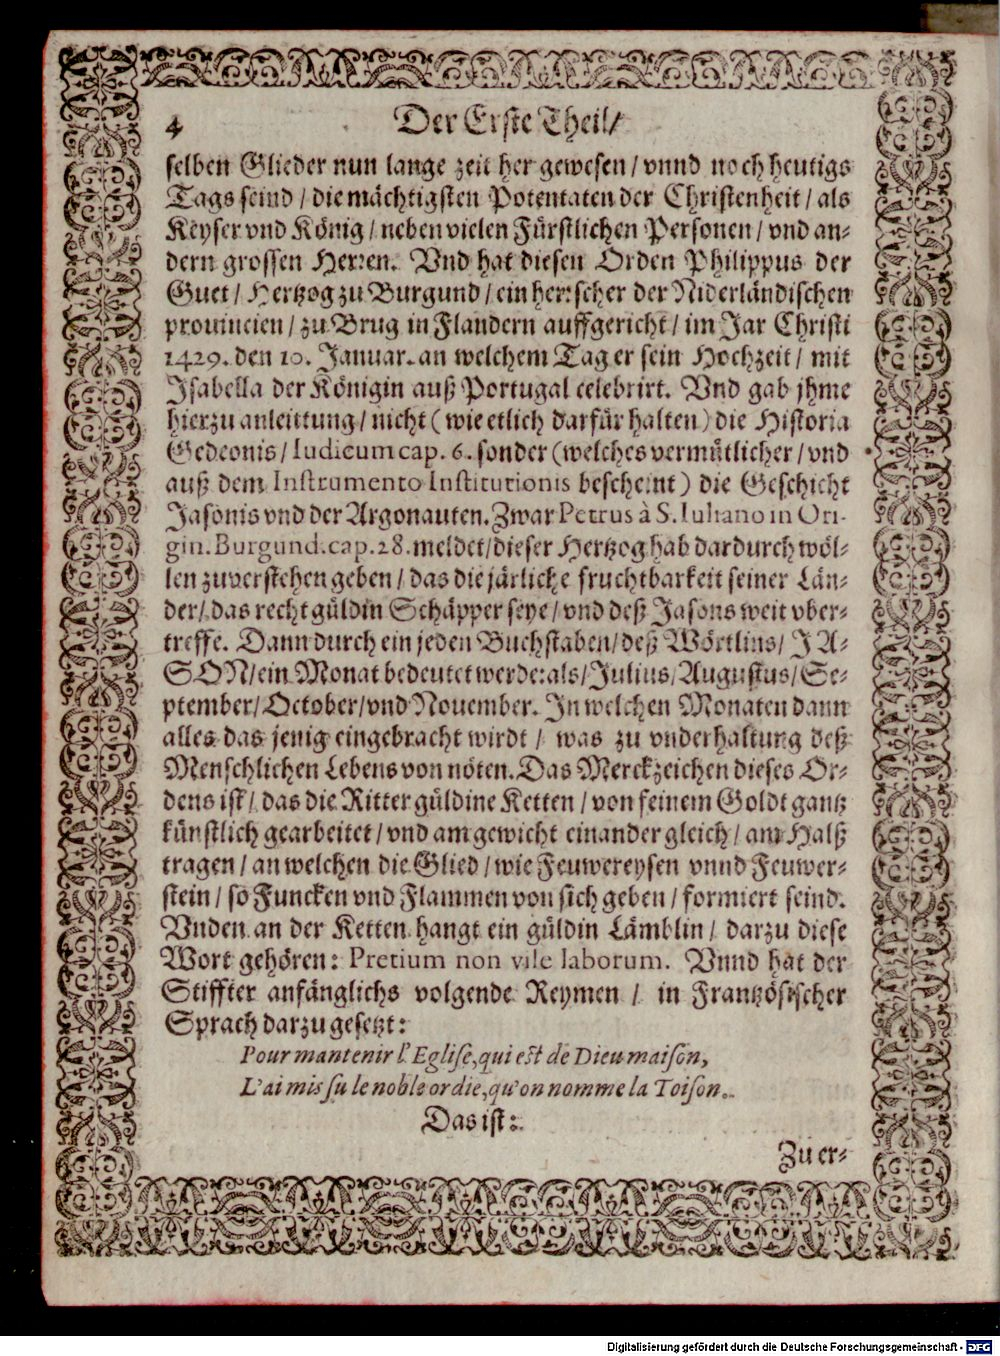 4 Der Erste Theil/
selben Glieder nun lange zeit her gewesen / vnnd noch heutigs
Tags seind / die mächtigsten Potentaten der Christenheit / als
Keyser vnd König / neben vielen Fürstlichen Personen / vnd an-
dern grossen Herren. Vnd hat diesen Orden Philippus der
Guet / Hertzog zu Burgund / ein herrscher der Niderländischen
prouincien / zu Brug in Flandern auffgericht / im Jar Christi
1429. den 10. Januar. an welchem Tag er sein Hochzeit / mit
Isabella der Königin auß Portugal celebrirt. Vnd gab jhme
hierzu anleittung / nicht ( wie etlich darfür halten ) die Historia
Gedeonis / Iudicum cap. 6. sonder (welches vermütlicher / vnd
auß dem Instrumento Institutionis bescheint ) die Geschicht
Jasonis vnd der Argonauten. Zwar Petrus à S. Iuliano in Ori-
gin. Burgund. cap. 28. meldet / dieser Hertzog hab dardurch wöl-
len zuverstehen geben / das die järliche fruchtbarkeit seiner Län-
der / das recht güldin Schäpper seye / vnd deß Jasons weit vber-
treffe. Dann durch ein jeden Buchstaben / deß Wörtlins / JA-
SON / ein Monat bedeutet werde: als / Julius / Augustus / Se-
ptember / October / vnd Nouember. In welchen Monaten dann
alles das jenig eingebracht wirdt / was zu vnderhaltung deß
Menschlichen Lebens von nöten. Das Merckzeichen dieses Or-
dens ist / das die Ritter güldine Ketten / von feinem Goldt gantz
künstlich gearbeitet / vnd am gewicht einander gleich / am Halß
tragen / an welchen die Glied / wie Feuwereysen vnnd Feuwer-
stein / so Funcken vnd Flammen von sich geben / formiert seind.
Vnden an der Ketten hangt ein güldin Lämblin / darzu diese
Wort gehören: Pretium non vile laborum. Vnnd hat der
Stiffter anfänglichs volgende Reymen / in Frantzösischer
Sprach darzu gesetzt:
Pour mantenir l'Eglise, qui est de Dieu maison,
L'ai mis su le noble ordie, qu'on nomme la Toison.
Das ist:
Zu er-
Digitalisierung gefördert durch die Deutsche Forschungsgemeinschaft - DFG